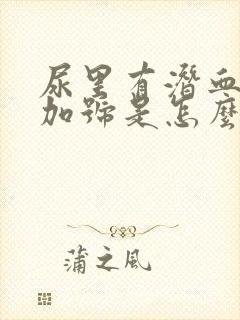 尿里有潜血
加号是怎麼
蒲之风